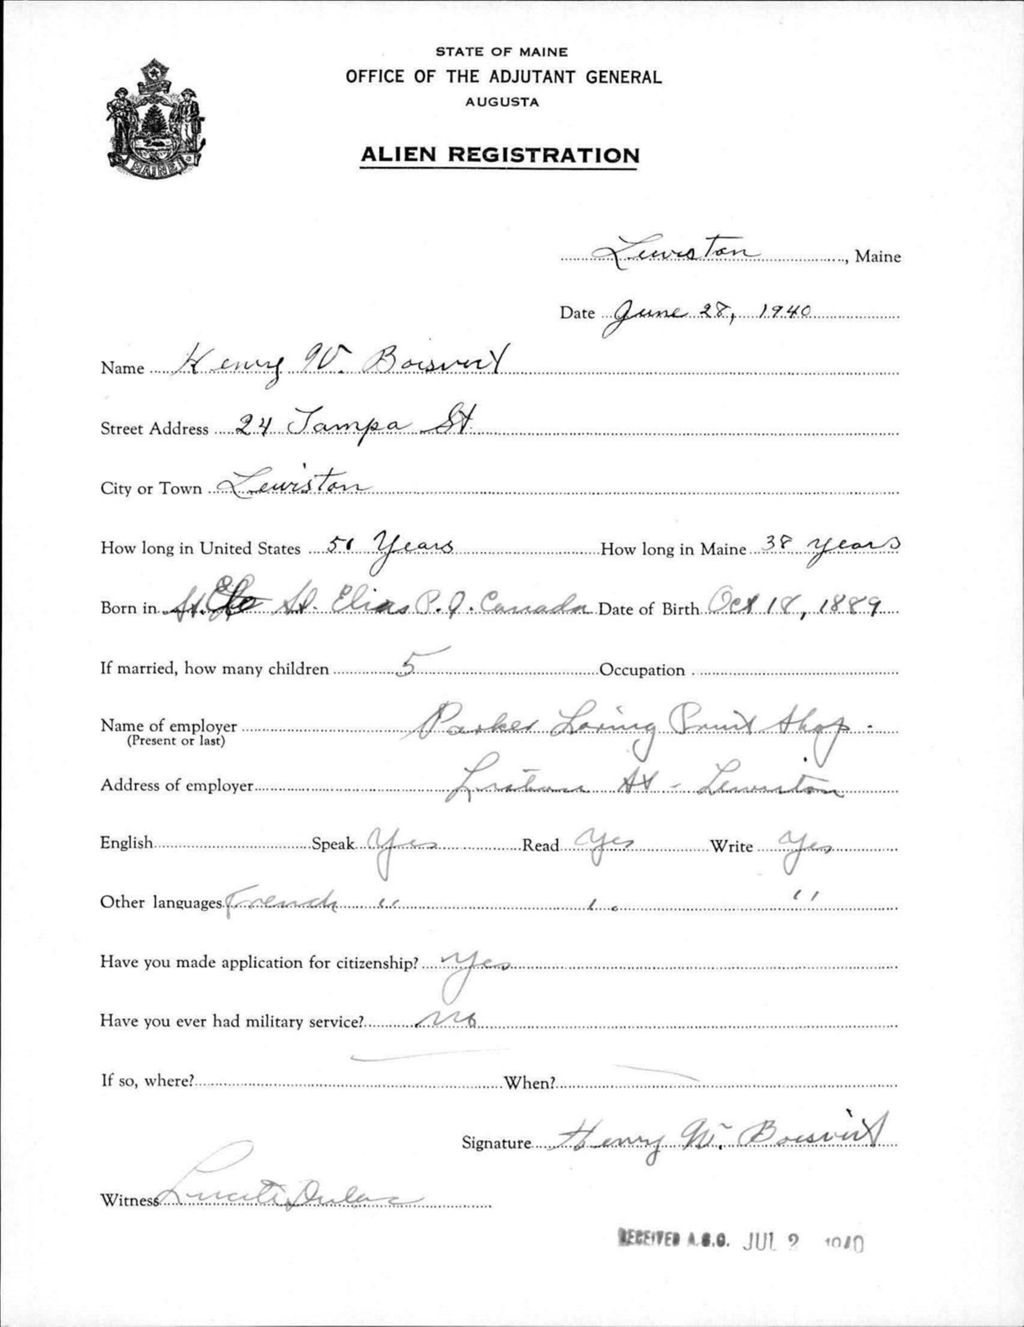 STATE OF MAINE
OFFICE OF THE ADJUTANT GENERAL
AUGUSTA
ALIEN REGISTRATION
MAINE
Lewiston, Maine
Date June 28, 1940
Name Henry W. Boisvert
Street Address 24 Tampa St.
City or Town Lewiston
How long in United States 51 Years How long in Maine 38 years
Born in St. St. Elias P.Q. Canada Date of Birth Oct 18, 1889
If married, how many children 5 Occupation
Name of employer Parker Loring Print Shop -
(Present or last)
Address of employer Lisbon St - Lewiston
English Speak Yes Read Yes Write Yes
Other languages French " " "
Have you made application for citizenship? Yes
Have you ever had military service? No
If so, where? — When? —
Signature Henry W. Boisvert
Witness Lucille Dulac
RECEIVED A.G.O. JUL 2 1940